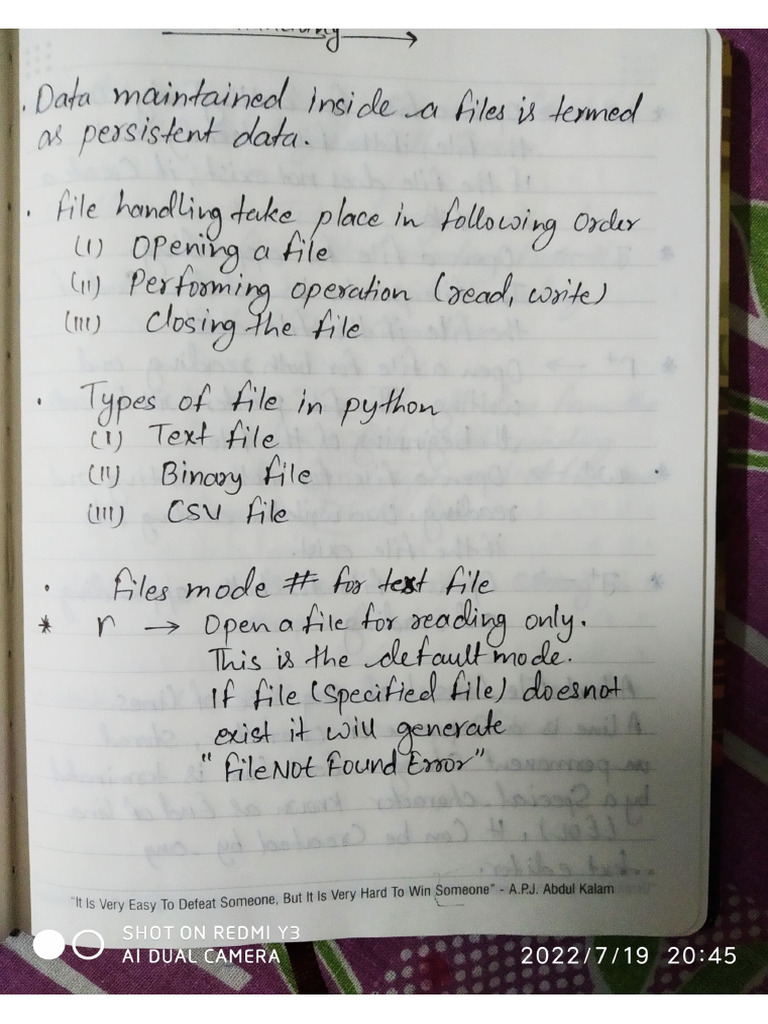 . Data maintained inside a files is termed
as persistent data.
. file handling take place in following order
(I) Opening a file
(II) Performing operation (read, write)
(III) Closing the file
. Types of file in python
(I) Text file
(II) Binary file
(III) CSV file
. files mode # for text file
* r → Open a file for reading only.
This is the default mode.
If file (specified file) doesnot
exist it will generate
"fileNot Found Error"
"It Is Very Easy To Defeat Someone, But It Is Very Hard To Win Someone" - A.P.J. Abdul Kalam
SHOT ON REDMI Y3
AI DUAL CAMERA
2022/7/19 20:45